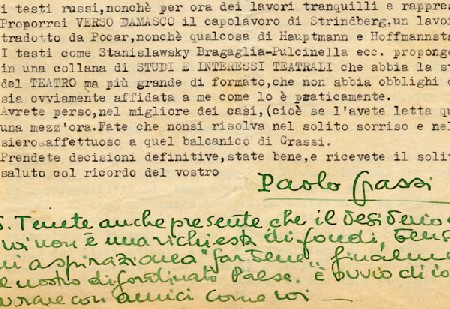 i testi russi,nonchè per ora dei lavori tranquilli e rappre
Proporrei VERSO DAMASCO il capolavoro di Strindberg,un lavor
tradotto da Pocar,nonchè qualcosa di Hauptmann e Hoffmannsta
I testi come Stanislawsky Bragaglia-Pulcinella ecc. propongo
in una collana di STUDI E INTERESSI TEATRALI che abbia la st
del TEATRO ma più grande di formato,che non abbia obblighi d
sia ovviamente affidata a me come lo è praticamente.
Avrete perso,nel migliore dei casi,(cioè se l'avete letta qu
una mezz'ora.Fate che nonsi risolva nel solito sorriso e nel
siero affettuoso a quel balcanico di Grassi.
Prendete decisioni definitive,state bene,e ricevete il solit
saluto col ricordo del vostro
Paolo Grassi
S. Tenete anche presente che il desiderio
voi non è una richiesta di fondi,
aspirazione a "far bene" finalme
nostro disordinato Paese. È ovvio di
con amici come voi —